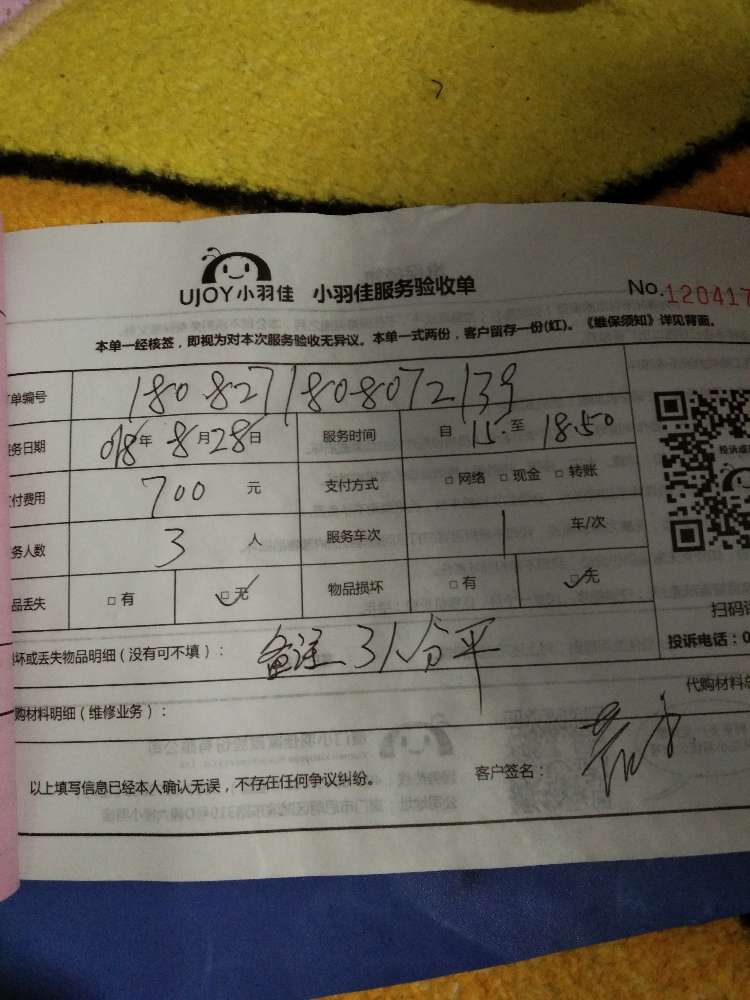 UJOY小羽佳 小羽佳服务验收单 No.120417
本单一经核签，即视为对本次服务验收无异议。本单一式两份，客户留存一份(红)。《维保须知》详见背面。
单编号 1808271808072139
务日期 018年 8月28日 服务时间 自 15: 至 18.50
付费用 700 元 支付方式 □网络 □现金 □转账
务人数 3 人 服务车次 1 车/次
品丢失 □有 □无 物品损坏 □有 □无
坏或丢失物品明细（没有可不填）： 备注 3人分平
扫码
投诉电话：0
购材料明细（维修业务）： 代购材料总
以上填写信息已经本人确认无误，不存在任何争议纠纷。 客户签名：